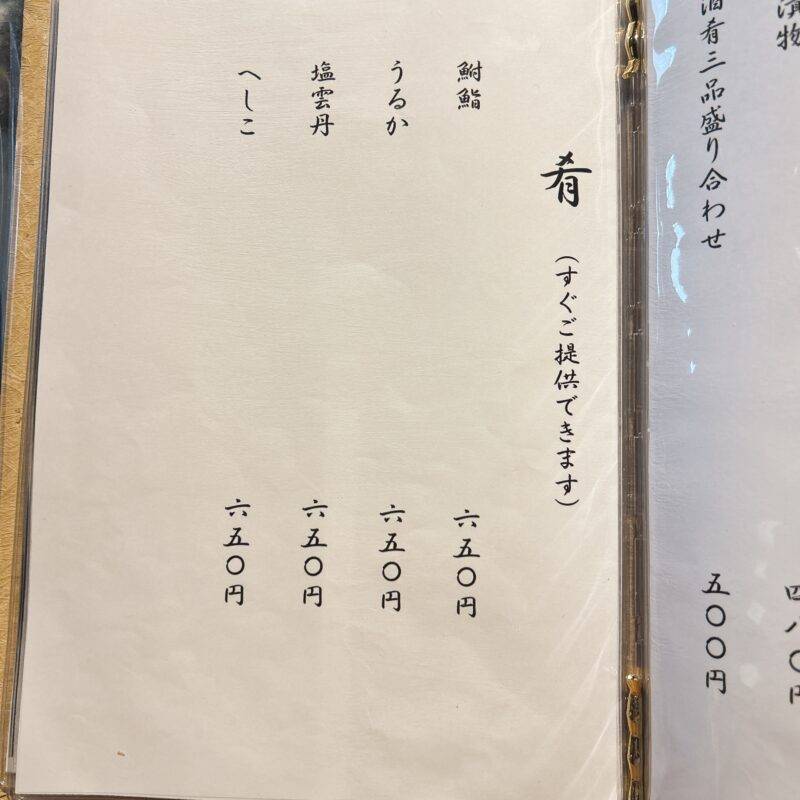 漬物
四八〇円
酒肴三品盛り合わせ
五〇〇円
肴 (すぐご提供できます)
鮒鮨
六五〇円
うるか
六五〇円
塩雲丹
六五〇円
へしこ
六五〇円